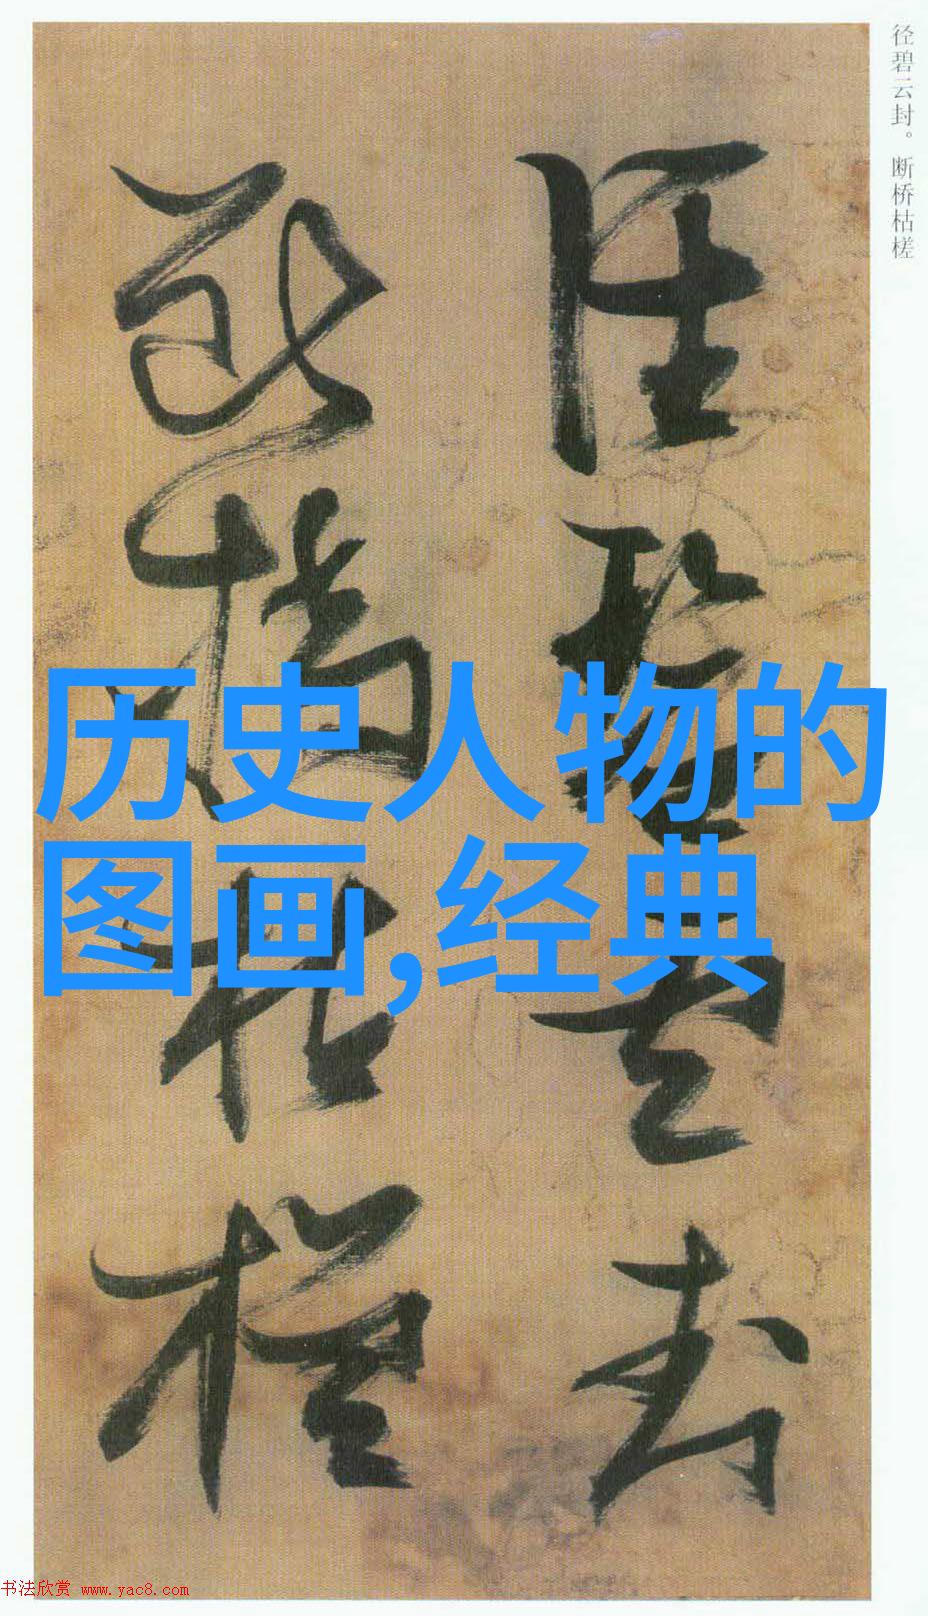 径碧云封。断桥枯槎
径碧云封
断桥枯槎
历史人物的
图画,经典
书法欣赏 www.yac8.com